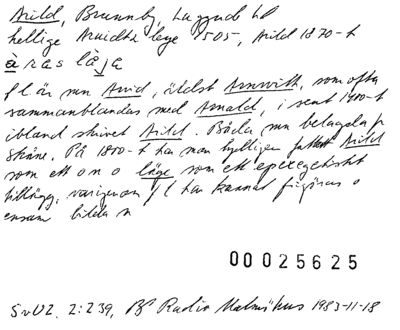 Arild, Brunnby, Luggude hd
hellige Arwidtz leye 1505, Arild 1870-t
a ras läja
fl är mn Arvid, äldst Arnwith, som ofta
sammanblandas med Arnald, i sent 1400-t
ibland skrivet Arild. Båda mn belagda fr
Skåne. På 1800-t har man tydligen fattat Arild
som ett on o läge som ett epexegetiskt
tillägg, varigenom fl har kunnat fungera o
ensam bilda n
00025625
SvO2, 2:239, BP Radio Malmöhus 1983-11-18